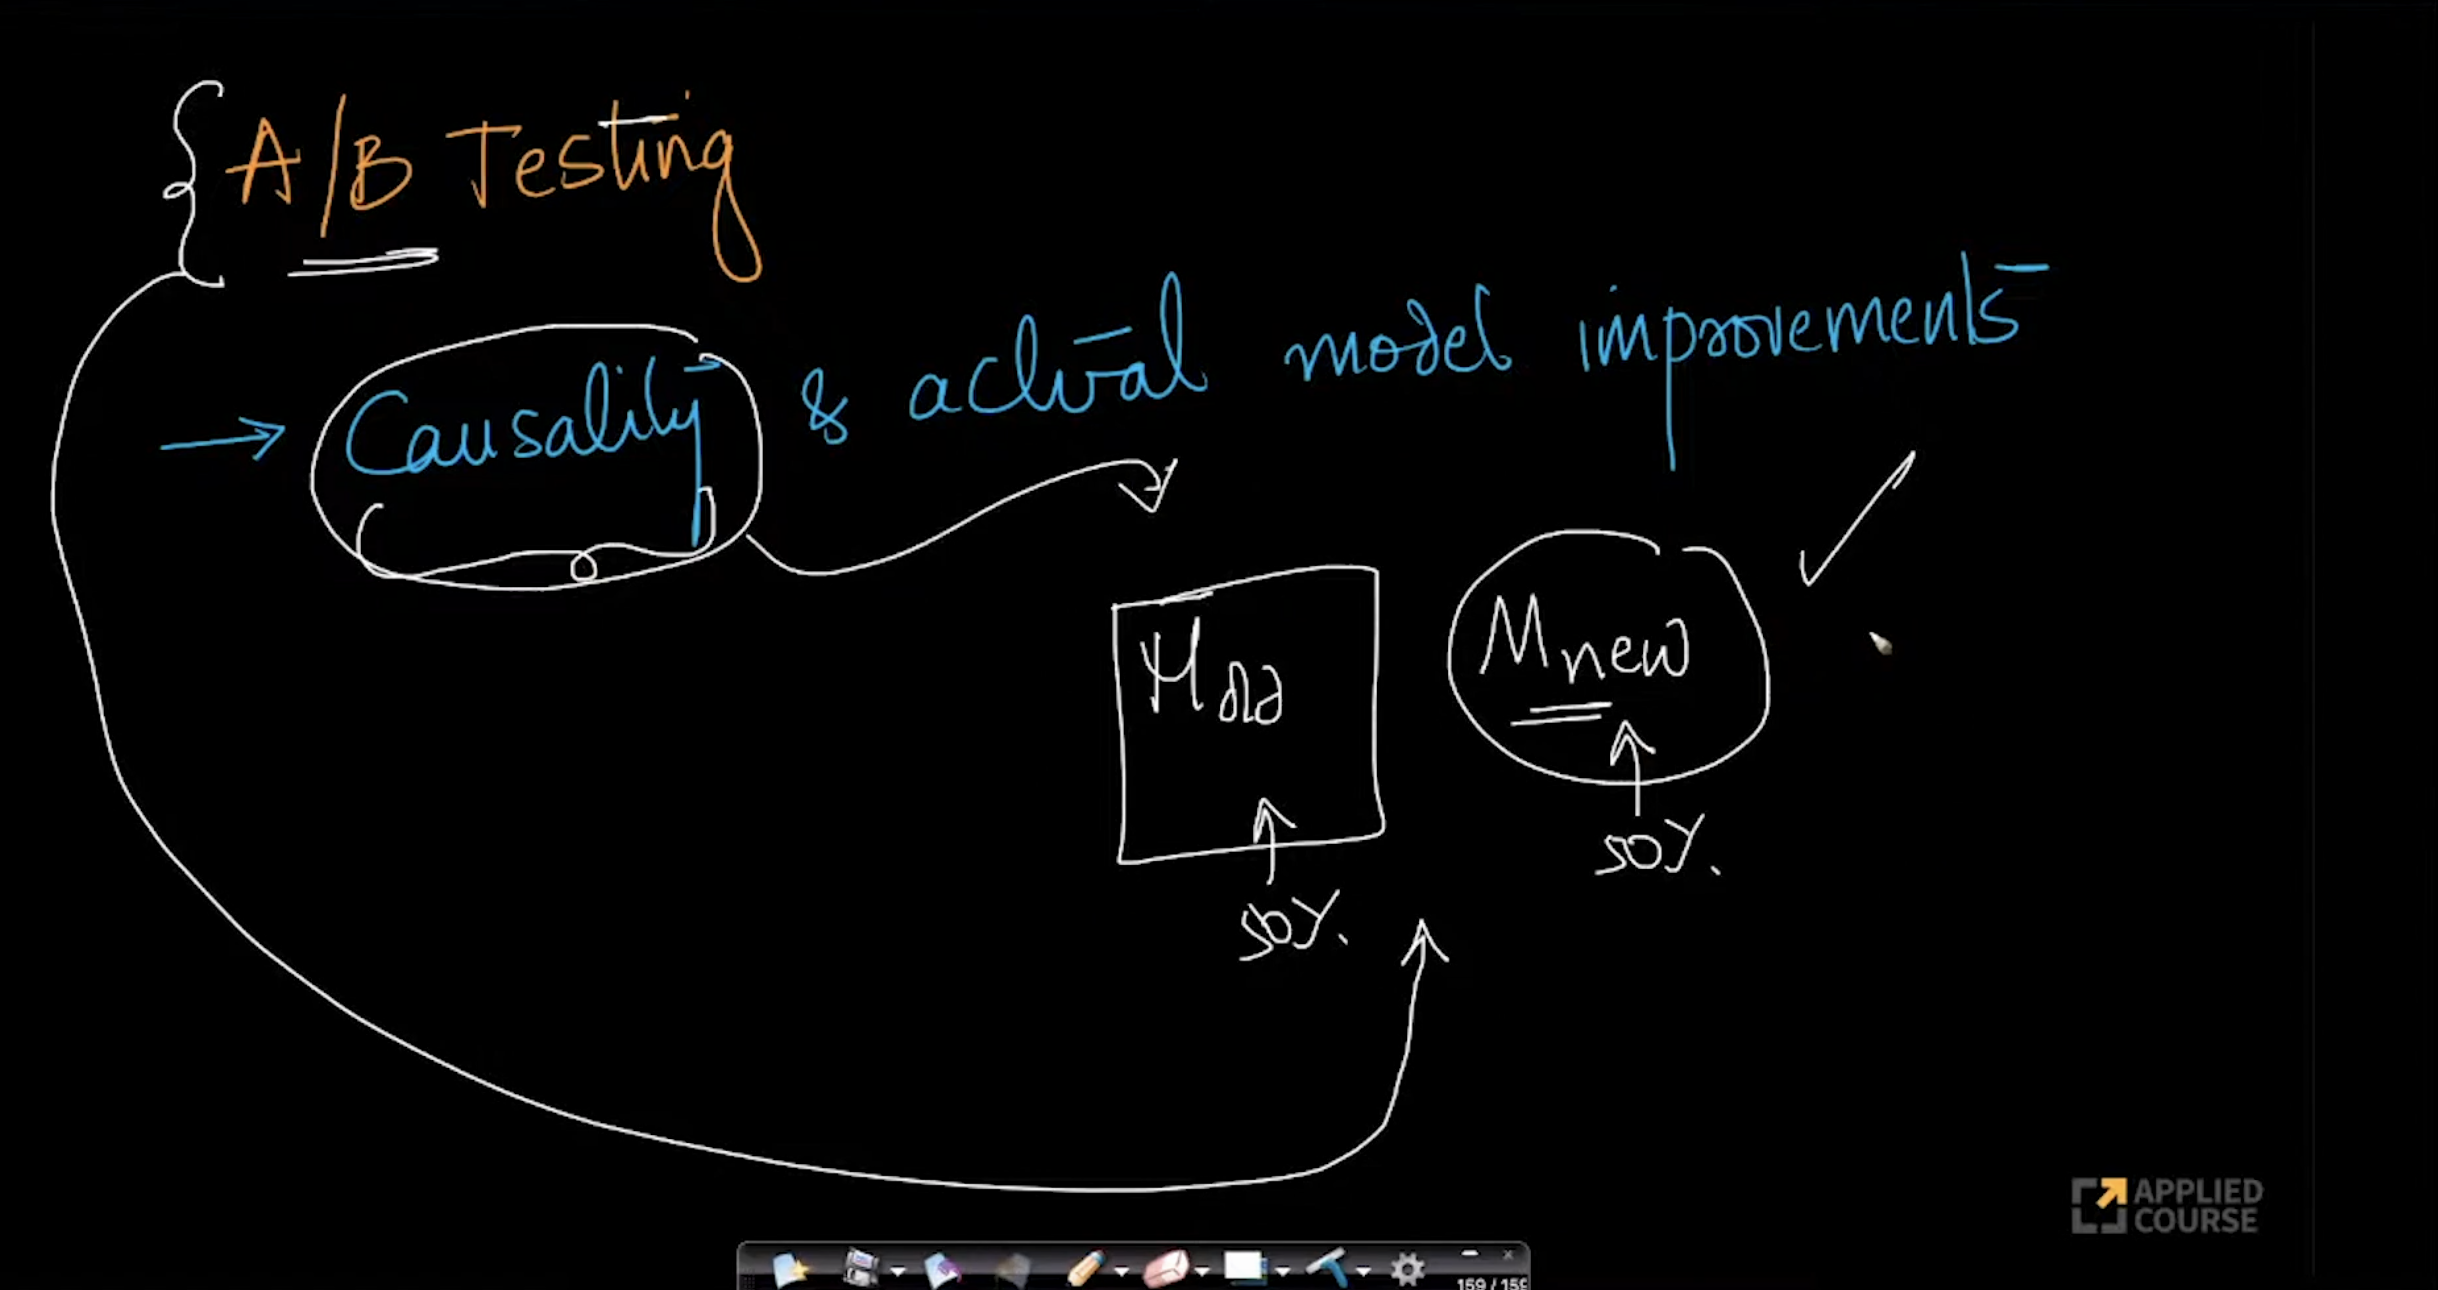 A/B Testing
→ Causality & actual model improvements
Mold Mnew
50%. 50%.
APPLIED
COURSE
159 / 159